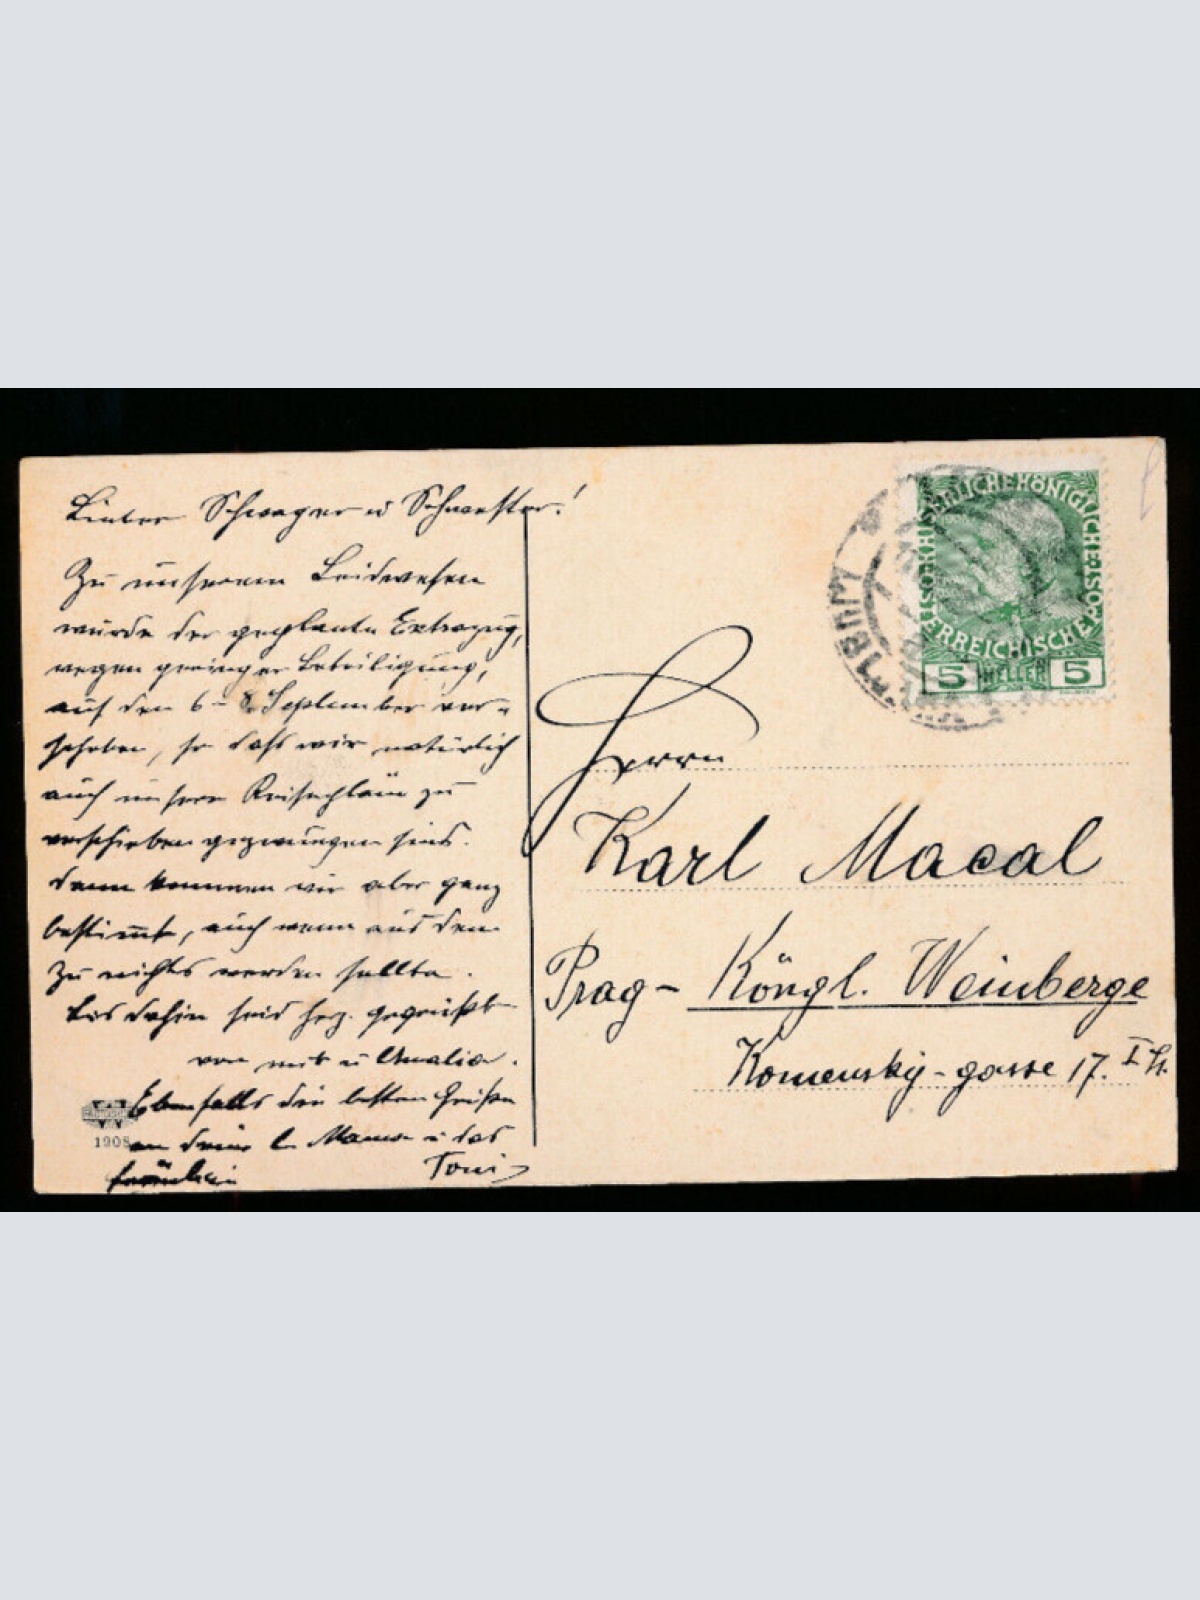 Lieber Schwager u Schwester!
Zu unserem Leidwesen
wurde der geplante Extrazug,
wegen geringer Beteiligung,
auf den 6-8. September ver-
schoben, so dass wir natürlich
auch unsere Reisepläne zu
verschieben gezwungen sind.
Dann kommen wir aber ganz
bestimmt, auch wenn aus dem
zu nichts werden sollte.
Bis dahin seid herz. gegrüßt
von mir u Amalia.
Ebenfalls die besten Grüße
an deine l. Mama u das
Fräulein Toni
1908
KAISERLICHE KÖNIGLICHE ÖSTERREICHISCHE
5 HELLER 5
Herrn
Karl Macal
Prag- Köngl. Weinberge
Komensky-gasse 17. I